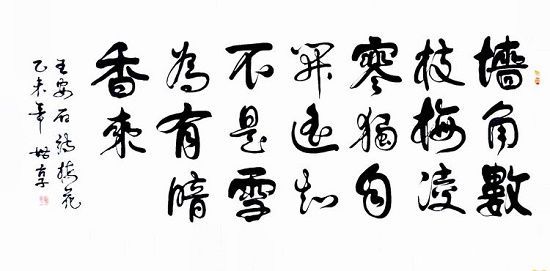 墻角數
枝梅凌
寒獨自
開遙知
不是雪
為有暗
香來
王安石詩梅花
乙未年